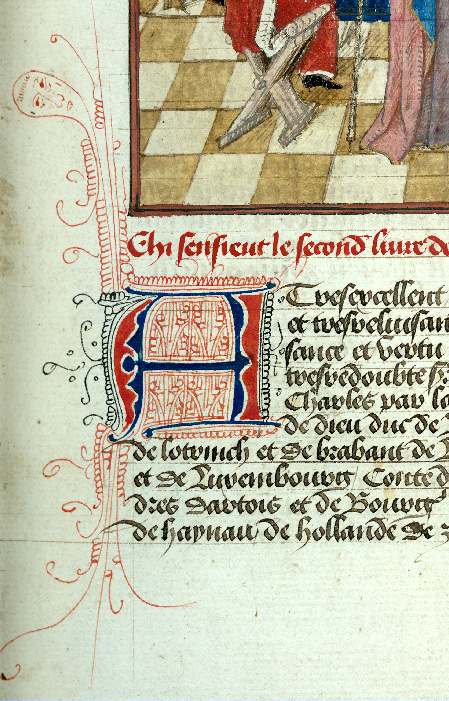 Chi senssieut le second liure de
A Tresexcellent
et tresreluisan
sance et vertu
tresredoubte s
Charles par la
de dieu duc de
de lotrijich et de brabant de
et de Luxembourg Conte d
dres dartois et de Bourg
de haynau de hollande de z